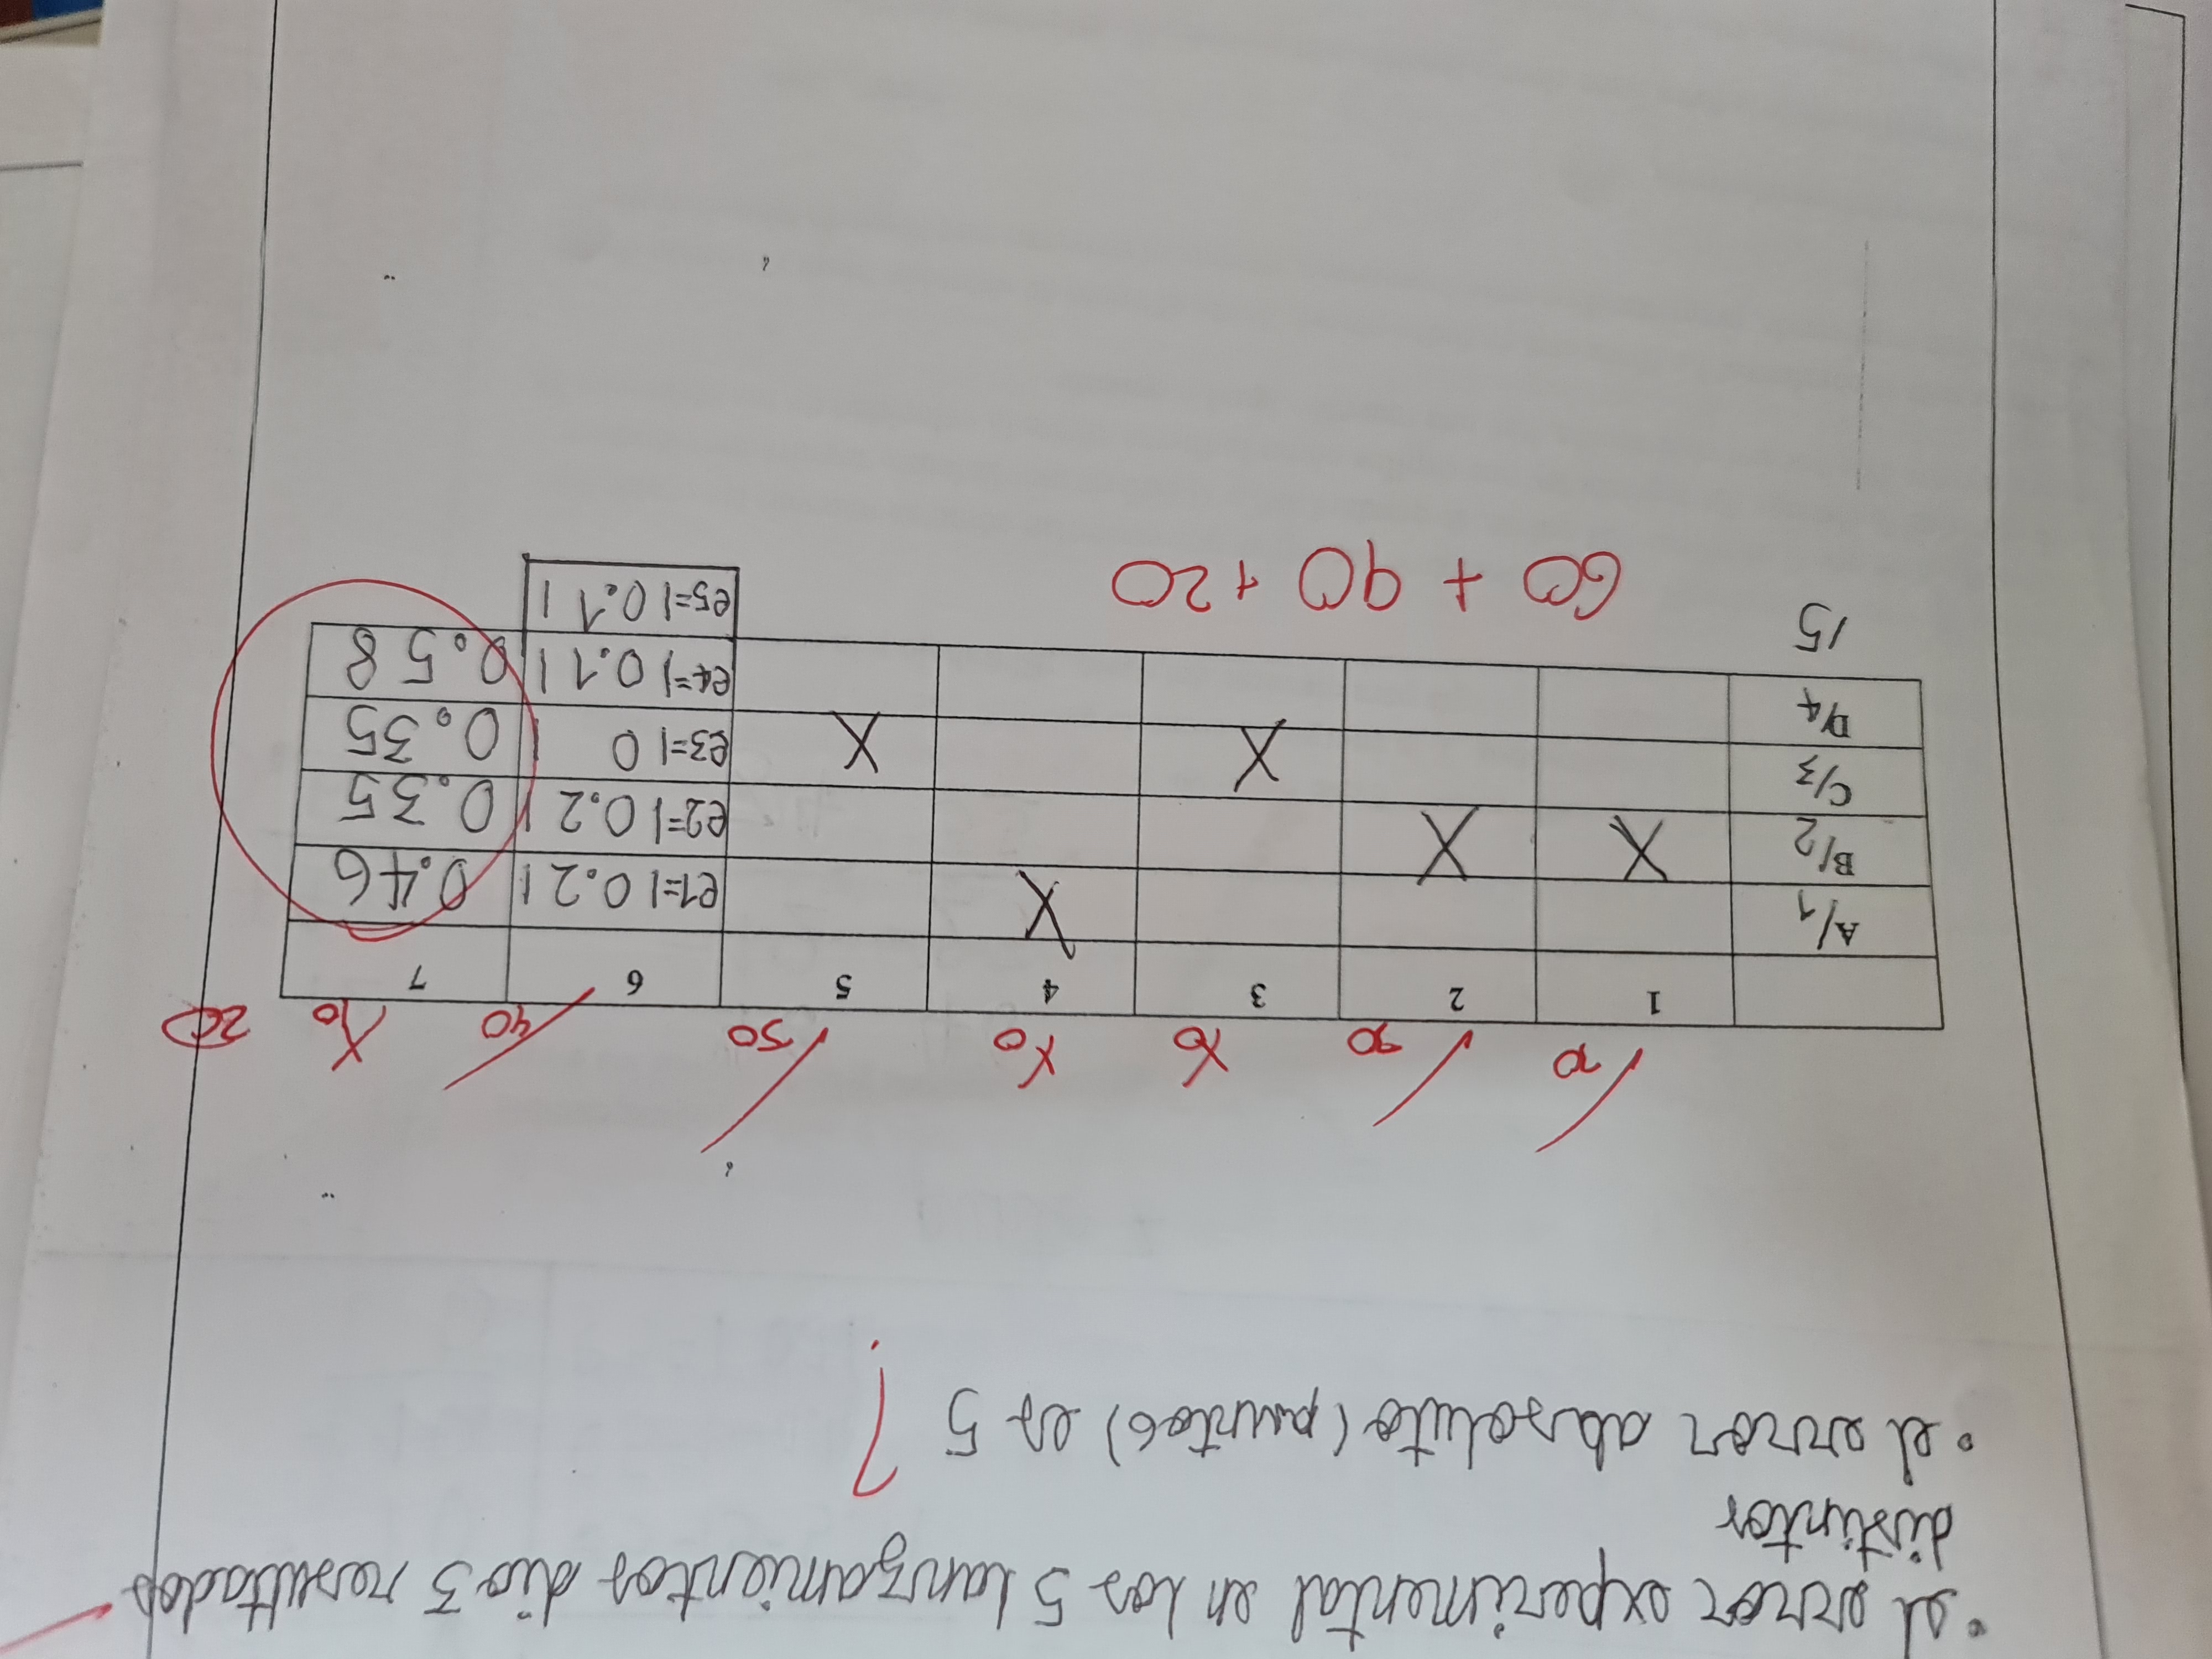 • el error experimental en los 5 lanzamientos dio 3 resultados
distintos
• el error absoluto (punto 6) es 5 ?
X0 X0 X0 20
1 2 3 4 5 6 7
A/1 X e1=|0.2| 0.46
B/2 X X e2=|0.2| 0.35
C/3 X X e3=|0| 0.35
D/4 e4=|0.1| 0.58
15 e5=|0.1|
60 + 90 + 20